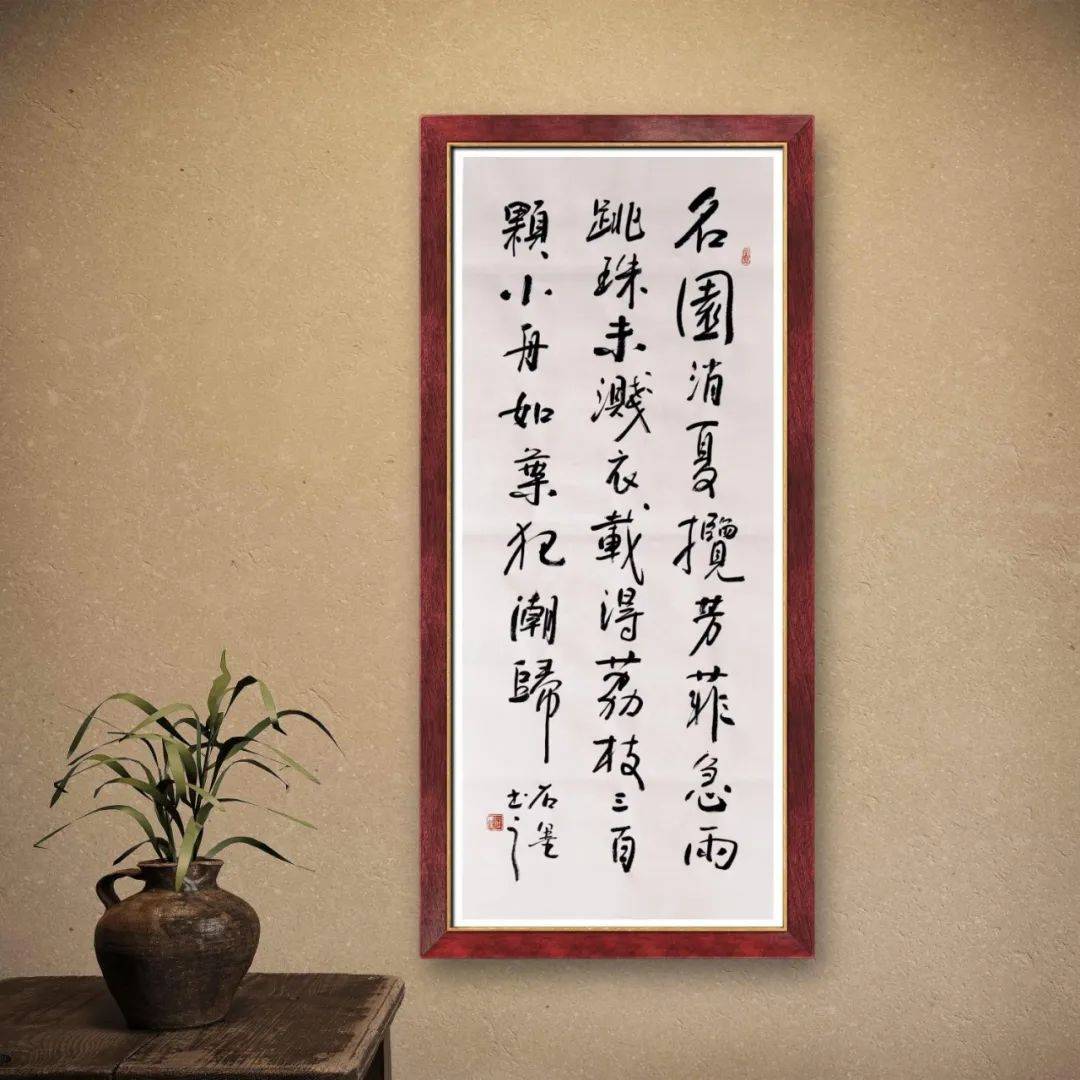 名園消夏攬芳菲急雨
跳珠未濺衣載得荔枝三百
顆小舟如葉犯潮歸
石墨
書